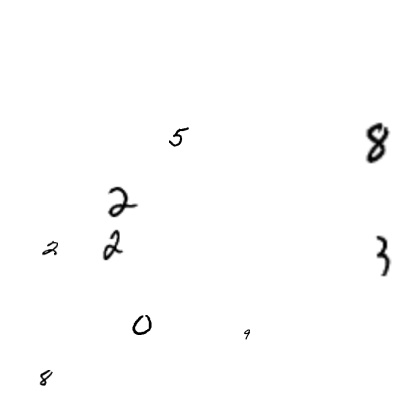 5 8
2
2 2 3
0 9
8